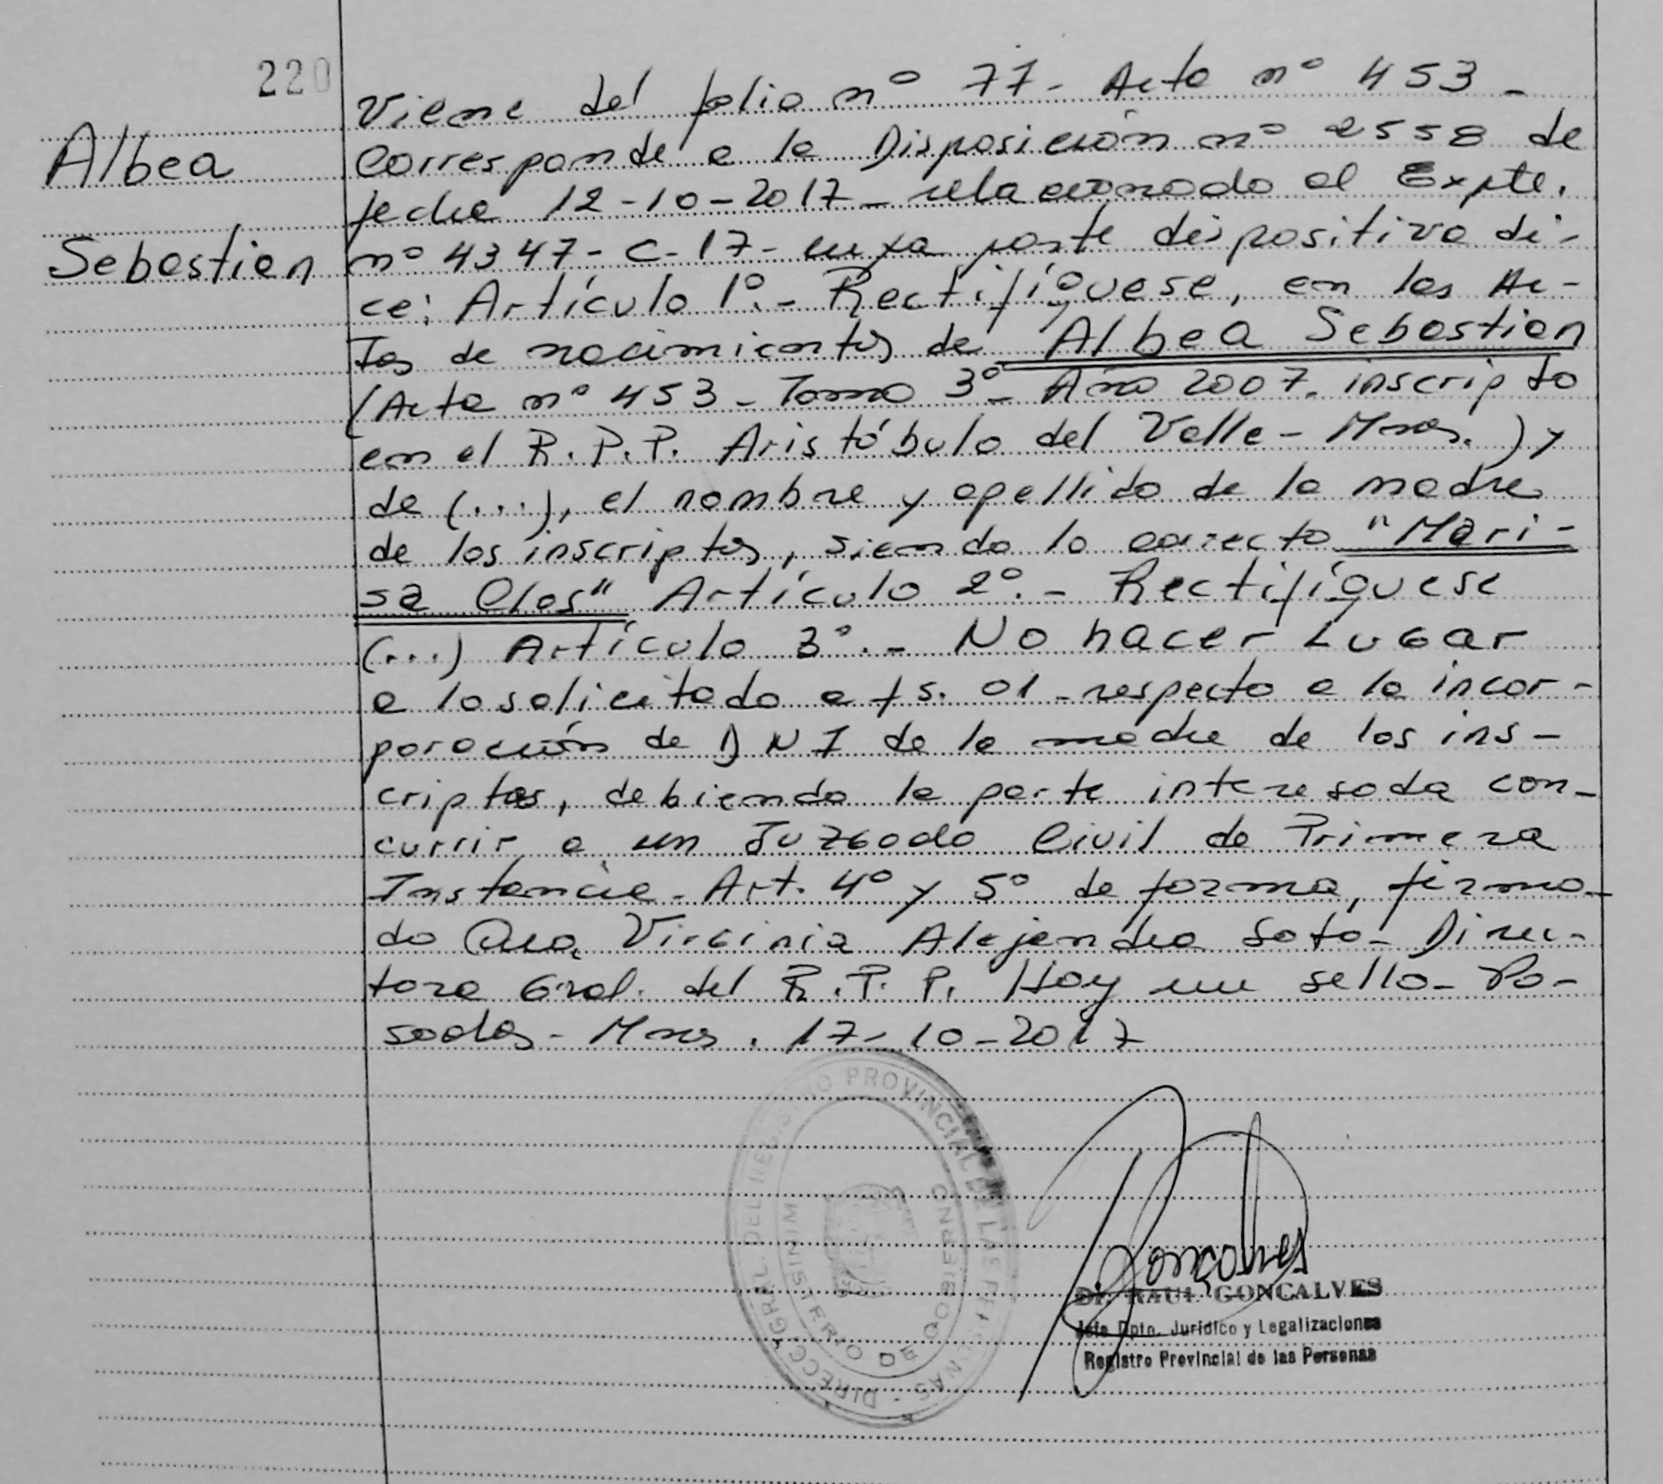 220
Albea
Sebastian
Viene del folio nº 77 - Acta nº 453 -
Corresponde a la Disposición nº 2558 de
fecha 12-10-2017 - relacionado al Expte.
nº 4347 - C - 17 - cuya parte dispositiva di-
ce: Artículo 1º.- Rectifíquese, en las Ac-
tas de nacimientos de Albea Sebastian
(Acta nº 453 - Tomo 3º - Año 2007. inscripto
en el R.P.P. Aristóbulo del Valle - Mnes.) y
de (...), el nombre y apellido de la madre
de los inscriptos, siendo lo correcto "Mari-
sa Clos" Artículo 2º.- Rectifíquese
(...) Artículo 3º.- No hacer Lugar
a lo solicitado a fs. 01 - respecto a la incor-
poración de DNI de la madre de los ins-
criptos, debiendo la parte interesada con-
currir a un Juzgado Civil de Primera
Instancia - Art. 4º y 5º de forma, firma-
do Virginia Alejandra Soto - Direc-
tora Gral. del R.P.P. Hay un sello - Po-
sadas - Mnes. 17-10-2017
DIRECC. GRAL. DEL REGISTRO PROVINCIAL DE LAS PERSONAS
MINISTERIO DE GOBIERNO
Goncalves
Dr. RAUL GONCALVES
Jefe Dpto. Jurídico y Legalizaciones
Registro Provincial de las Personas